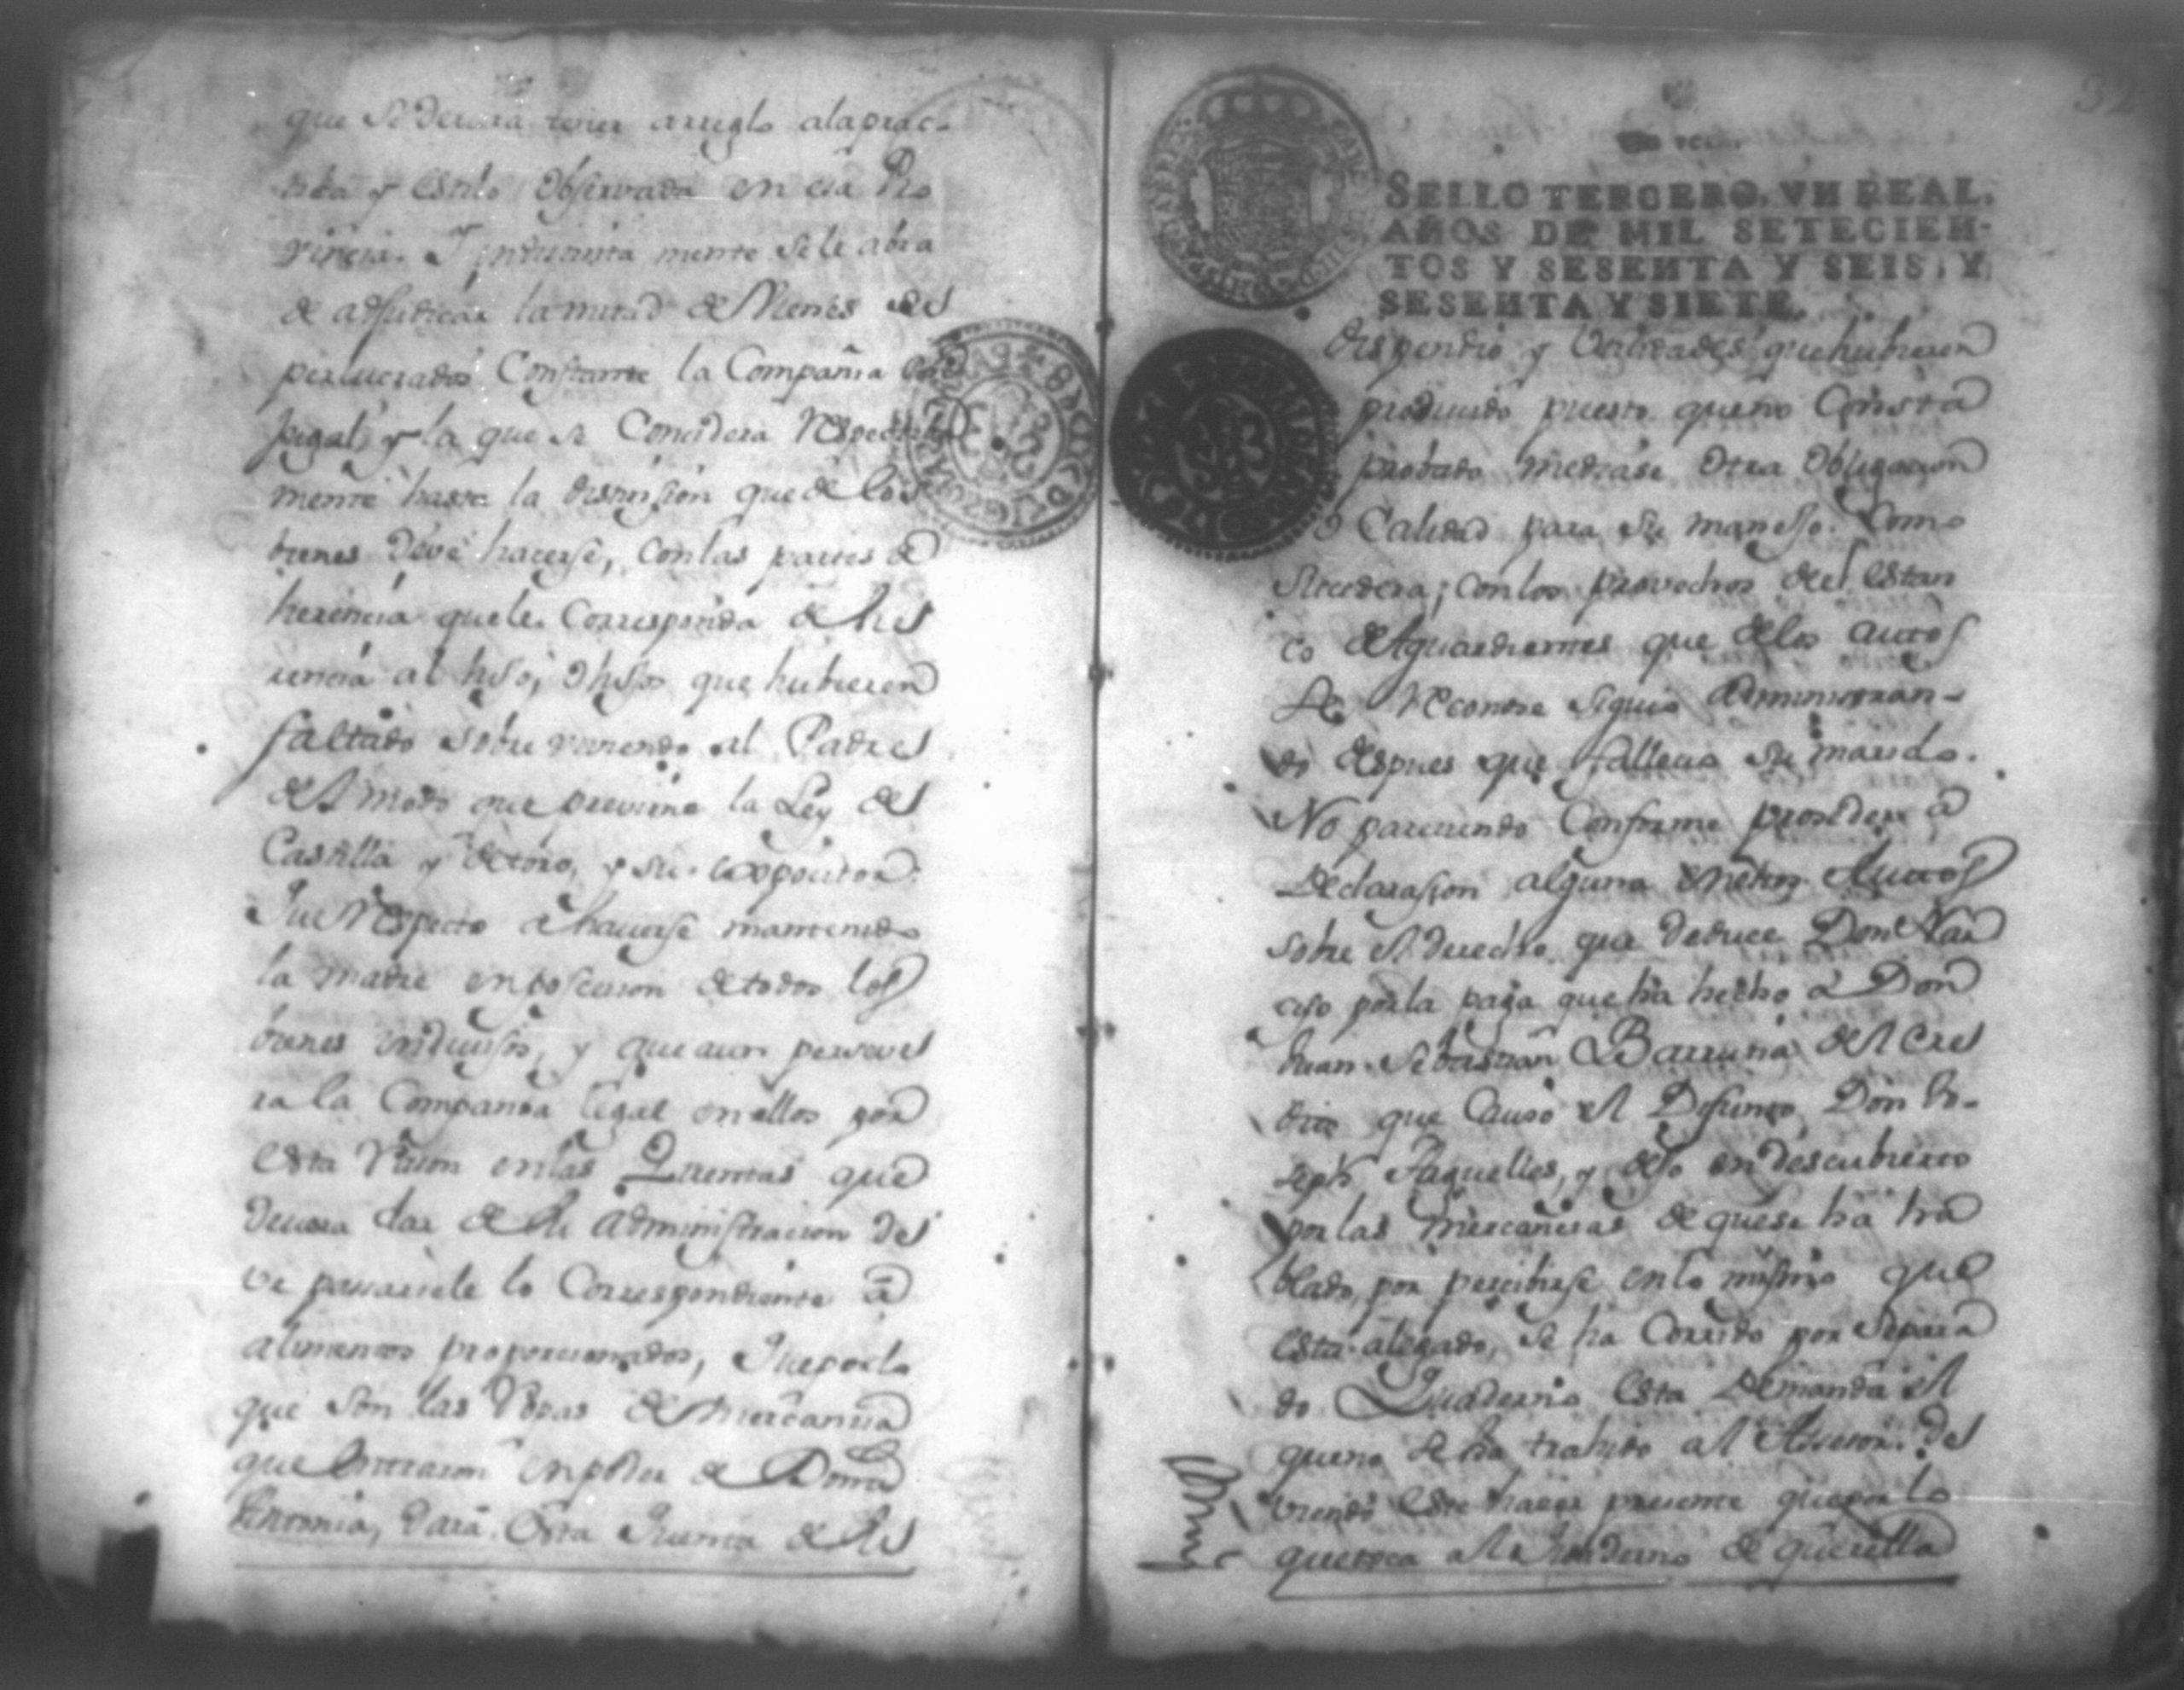 que se devera tener arreglo alaprac-
tica y estilo observada en esa Pro
vincia. Y juntamente sele abra
de adjudicar la mitad de Vienes
perlucrados Constante la Compañia
legal, y la que se Concidera Respectiva
mente hasta la division que de los
bienes deve hacerse, con las partes de
herencia quele Corresponda de he
rencia al hijo, ò hijos que hubieren
faltado sobre viviendo al Padre
del modo que previene la Ley de
Castilla y de toro, y su expocitor.
Que Respecto a haverse mantenido
la madre en posecion de todos los
bienes indivisos, y que aun perseve
ra la Compania legal en ellos por
esta Razon en las Quentas que
devera dar de su administracion de
ve pasarsele lo Correspondiente à
alimentos proporcionados, Que por lo
que son las Ropas de Mercancia
que entraron en poder de Doña
Antonia, dara esta Quenta de su
32
SELLO TERCERO, VN REAL,
AÑOS DE MIL SETECIEN-
TOS Y SESENTA Y SEIS, Y
SESENTA Y SIETE.
dispendio y Utilidades que hubieren
producido puesto que no Consta
probado mediase otra obligacion
ò Calidad para su manejo. Como
sucedera; con los provechos del estan
co de Aguardientes que de los autos
se Reconose siguio administran-
do despues que fallecio su marido.
No pareciendo Conforme proseder à
Declarasion alguna en estos Autos
sobre el derecho que deduce Don Nar
ciso por la paga que ha hecho à Don
Juan Sebastian Barrutia del cre
dito que Causo el Difunto Don Jo-
seph Faguelles, y dejo en descubierto
por las mercancias de que se ha ha
blado, por percibirse en lo mismo que
esta alegado, se ha Corrido por separa
do Quaderno esta Demanda el
que no se ha trahido al Asesor. De
viendo este hacer presente que por lo
que toca al Quaderno de querella